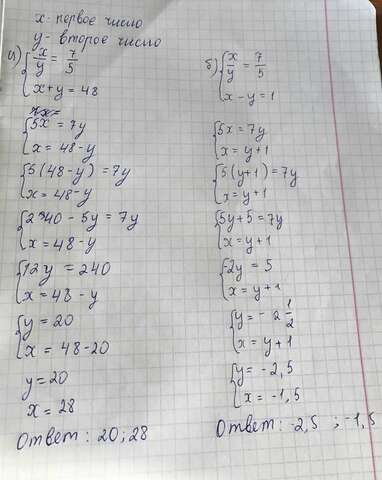 x - первое число
y - второе число
а) { x/y = 7/5
x + y = 48
{ 5x = 7y
x = 48 - y
{ 5(48 - y) = 7y
x = 48 - y
{ 240 - 5y = 7y
x = 48 - y
{ 12y = 240
x = 48 - y
{ y = 20
x = 48 - 20
y = 20
x = 28
Ответ: 20; 28
б) { x/y = 7/5
x - y = 1
{ 5x = 7y
x = y + 1
{ 5(y + 1) = 7y
x = y + 1
{ 5y + 5 = 7y
x = y + 1
{ 2y = 5
x = y + 1
{ y = - 2 1/2
x = y + 1
{ y = - 2,5
x = - 1,5
Ответ: -2,5 ; -1,5